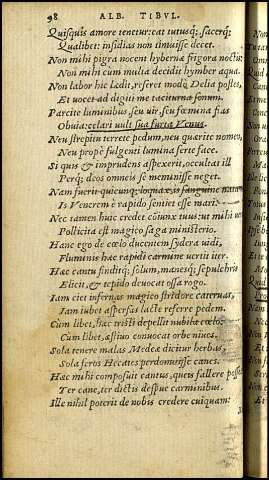 98 ALB. TIBVL.
Quisquis amore tenetur: eat tutusq́; sacerq́:
Qualibet: insidias non timuisse decet.
Non mihi pigra nocent hyberna frigora noctis:
Non mihi cum multa decidit hymber aqua.
Non labor hic lædit, reseret modò Delia postes,
Et uocet ad digiti me taciturna sonum.
Parcite luminibus, seu uir, seu fœmina fias
Obuia: celari uult sua furta Venus.
Neu strepitu terrete pedum, neu quærite nomen,
Neu propè fulgenti lumina ferte face.
Si quis & imprudens aspexerit, occultat ille
Perq́; deos omneis se meminisse neget.
Nam fuerit quicunq́; loquax, is sanguine natam
Is Venerem è rapido sentiet esse mari.
Nec tamen huic credet coniunx tuus: ut mihi
Pollicita est magico saga ministerio.
Hanc ego de cœlo ducentem sydera uidi,
Fluminis hæc rapidi carmine uertit iter.
Hæc cantu finditq́; solum, manesq́; sepulchris
Elicit, & tepido deuocat ossa rogo.
Iam ciet infernas magico stridore cateruas,
Iam iubet aspersas lacte referre pedem.
Cum libet, hæc tristi depellit nubila cœlo:
Cum libet, æstiuo conuocat orbe niues.
Sola tenere malas Medeæ dicitur herbas,
Sola feros Hecates perdomuisse canes.
Hæc mihi composuit cantus, queis fallere posses
Ter cane, ter dictis despue carminibus.
Ille nihil poterit de nobis credere cuiquam: